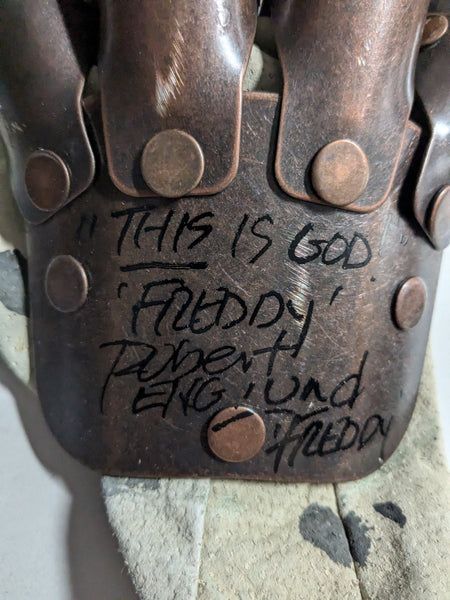 "THIS IS GOD"
'FREDDY'
Robert
ENGlund
'FREDDY